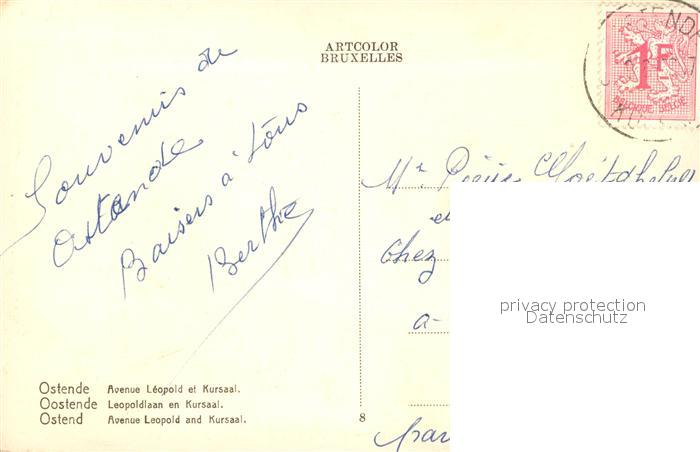 ARTCOLOR
BRUXELLES
1F
BELGIQUE-BELGIE
Souvenirs de
Ostende
Baisers à tous
Berthe
Mr
Chez
a-
privacy protection
Datenschutz
Ostende Avenue Léopold et Kursaal.
Oostende Leopoldlaan en Kursaal.
Ostend Avenue Leopold and Kursaal.
8